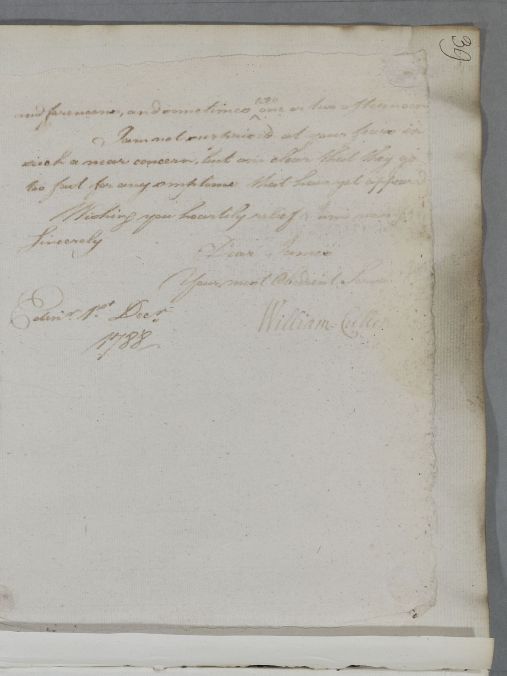 39
and forenoons, and sometimes one or two afternoon
I am not surpriz'd at your fears in
such a near concern, but am clear that they go
too fast for any symptoms that have yet appeard
Wishing you heartily relief I am
Sincerely
Dear James
Your most Obedient Serv
Edinr. 1st Decr.
William Cullen
1788